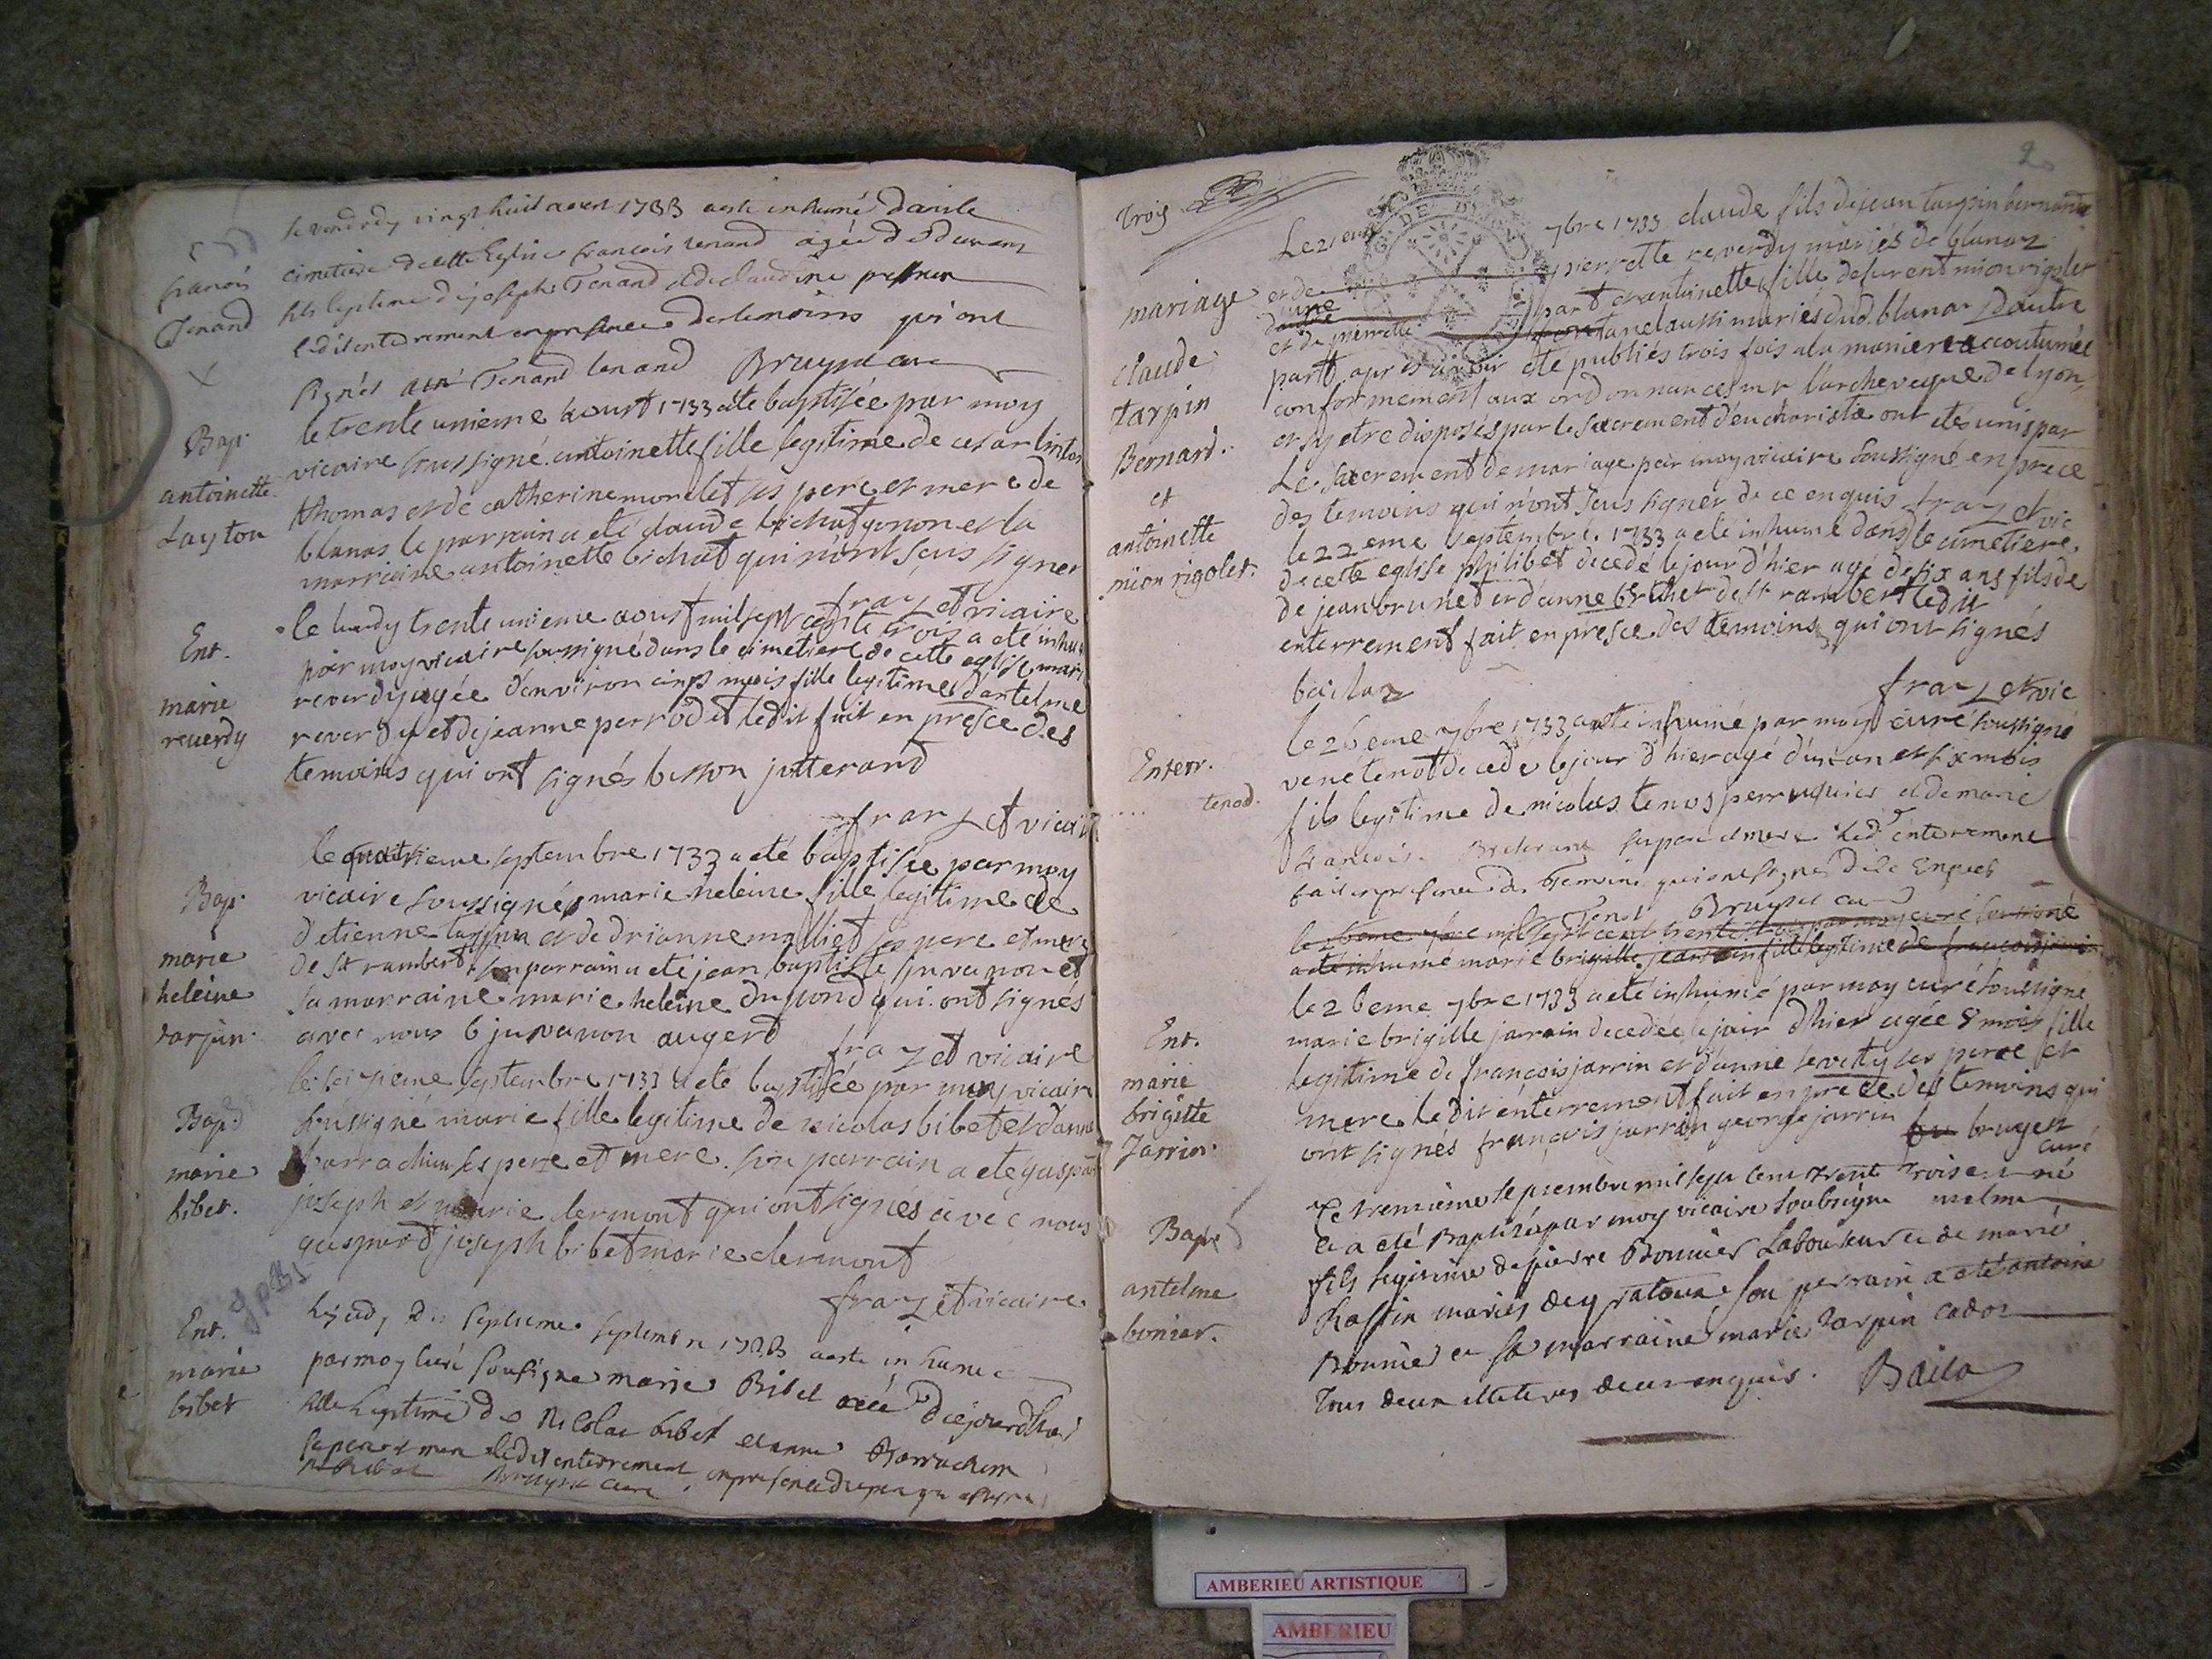 françois
Tenand
le vendredy vingt huit aoust 1733 a esté inhumé dans le
cimetiere de cette Eglise françois tenand agée de deux ans
fils legitime de joseph Tenand et de claudine
ledit enterrement en presence des temoins qui ont
signés Tenand tenand Bruyset curé
Bap.
antoinette
Layton
le trente unieme aoust 1733 a été baptisée par moy
vicaire soussigné antoinette fille legitime de cesar
thomas et de catherine morelet ses pere et mere de
blanas le parrain a eté claude bichat et la
marraine antoinette bichat qui n'ont seus signer
fra et vicaire
Ent.
marie
reverdy
le lundy trente unieme aoust mil sept cents trois a eté inhu
par moy vicaire soussigné dans le cimetiere de cette eglise marie
reverdy agée d'environ cinq mois fille legitime d'antelme
reverdy et de jeanne perrodet ledit fait en presce des
temoins qui ont signés besson jutterand
fra et vicai
Bap.
marie
heleine
tarpin.
le septembre 1733 a eté baptisée par moy
vicaire soussigné marie heleine fille legitime de
d'etienne tarpin et de drianne molliet ses pere et mere
de st rambert son parrain a eté jean baptiste juvanon et
sa marraine marie heleine dupond qui ont signés
avec nous b juvanon augerd
fra et vicaire
Bap.
marie
bibet.
le septembre 1733 a eté baptisée par moy vicaire
soussigné marie fille legitime de nicolas bibet et d'anne
barrachin ses pere et mere. son parrain a eté gaspar
joseph et marie clermont qui ont signés avec nous
gaspard joseph bibet marie clermont
fra et vicaire
Ent.
marie
bibet
le jeudy septembre 1733 a esté inhumé
par moy curé sousigné marie Bibet née d'aujourdhui
fille legitime de Nicolas bibet et anne Barrachin
ses pere et mere ledit enterrement en presence du pere qui a signé
Bruyset curé
2
trois
mariage
claude
tarpin
Bernard.
et
antoinette
mion rigolet.
Le 21 eme 7bre 1733 claude fils de jean tarpin bernard
et de pierrette reverdy mariés de blanaz
d'une part et antoinette fille defurent mion rigolet
et de pierrette tanel aussi mariés dud. blanaz d'autre
part après avoir été publiés trois fois a la maniere accoutumée
conformement aux ordonnances mr l'archeveque de lyon,
et s'y etre disposés par le sacrement d'eucharistie ont etés unis par
Le sacrement de mariage par moy vicaire soussigné en prece
des temoins qui n'ont seus signer de ce enquis fra et vic
le 22 eme septembre 1733 a eté inhumé dans le cimetiere
de ceste eglise philibet decedé le jour d'hier agé de six ans fils de
de jean brunet et d'anne brachet de st rambert ledit
enterrement fait en presce des temoins qui ont signés
bailaz
fra et vic
Enterr.
tenod.
le 26 eme 7bre 1733 a eté inhumé par moy curé soussigné
tenot decedé le jour d'hier agé d'un an et six mois
fils legitime de nicolas tenos perruquier et de marie
françoise ses pere et mere Led. enterrement
fait en presence des temoins qui ont signes de ce Enquis
Tenot Bruyset curé
le 26eme 7bre mil sept cent trente trois par moy curé soussigné
a eté inhumé marie brigitte jarrin fille legitime de françois jarrin
Ent.
marie
brigitte
Jarrin.
le 26eme 7bre 1733 a eté inhumé par moy curé soussigné
marie brigitte jarrain decedée le jour d'hier agée 8 mois fille
legitime de françois jarrin et d'anne ses pere et
mere le dit enterrement fait en prece des temoins qui
ont signés françois jarrin george jarrin bruyset
curé
Bapt
antelme
bonier.
Le trentieme septembre mil sept cent trente trois est né
et a eté Baptisé par moy vicaire soubsigné antelme
fils legitime de pierre Bonnier Laboureur et de marie
Raffin mariés de son parrain a eté antoine
Bonnier et sa marraine marie tarpin cador
tous deux illeteres de ce enquis. Baila
AMBERIEU ARTISTIQUE
AMBERIEU